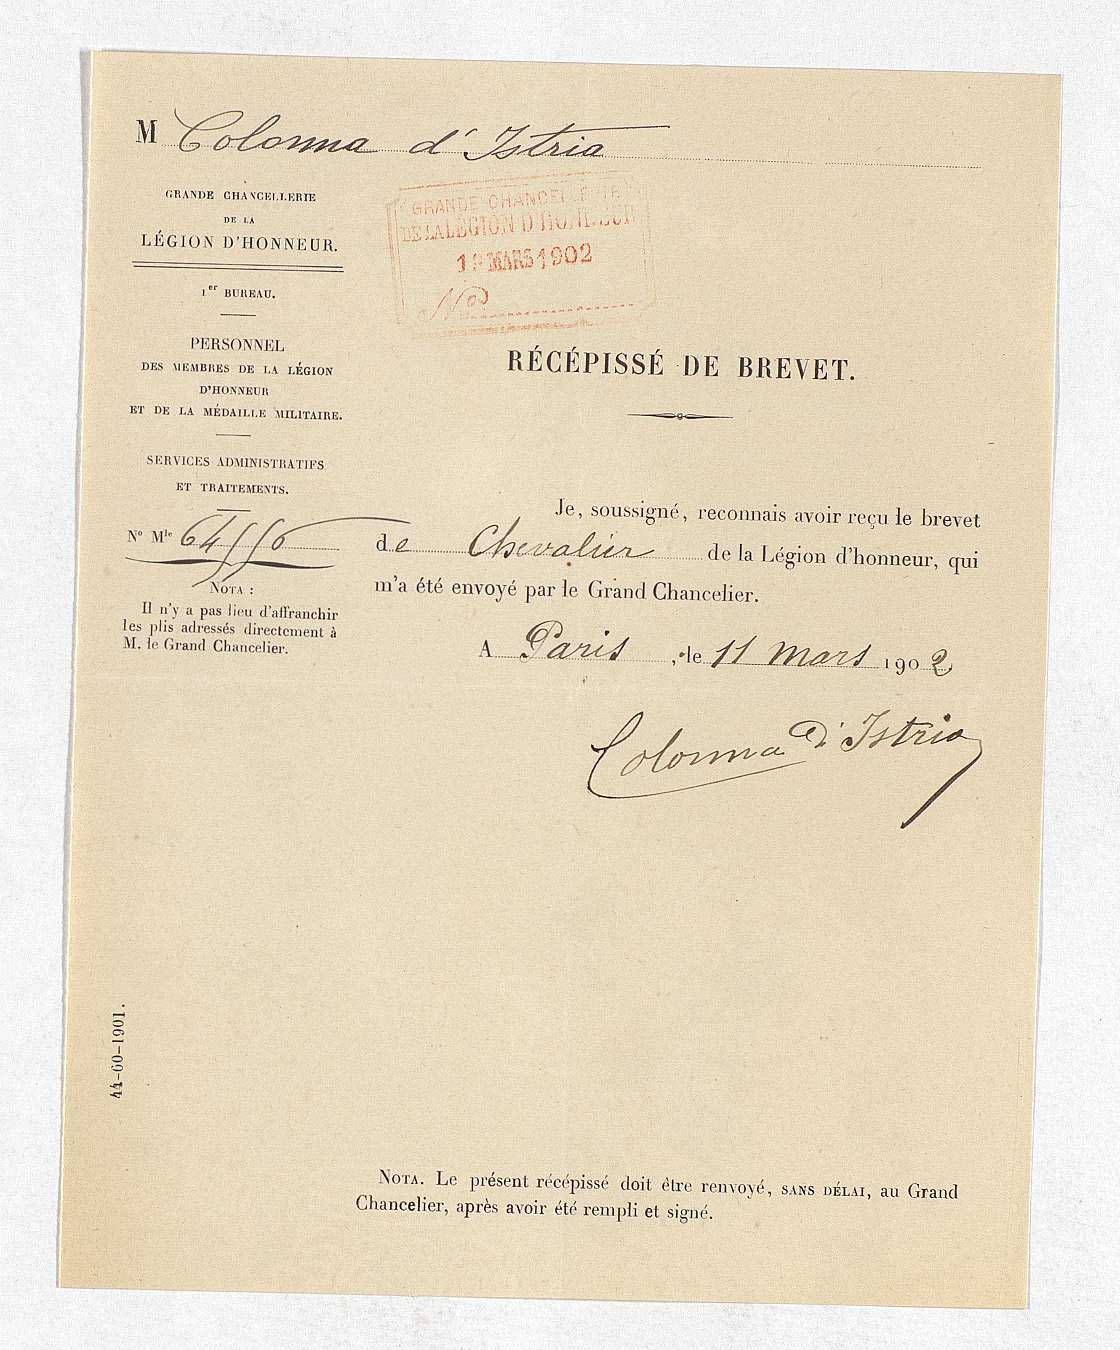 M Colonna d'Istria
GRANDE CHANCELLERIE
DE LA
LÉGION D'HONNEUR.
1er BUREAU.
PERSONNEL
DES MEMBRES DE LA LÉGION
D'HONNEUR
ET DE LA MÉDAILLE MILITAIRE.
SERVICES ADMINISTRATIFS
ET TRAITEMENTS.
No Mle
NOTA :
Il n'y a pas lieu d'affranchir
les plis adressés directement à
M. le Grand Chancelier.
GRANDE CHANCELLERIE
DE LA LÉGION D'HONNEUR
MARS 1902
No
RÉCÉPISSÉ DE BREVET.
Je, soussigné, reconnais avoir reçu le brevet
de Chevalier de la Légion d'honneur, qui
m'a été envoyé par le Grand Chancelier.
A Paris, le 11 mars 1902
Colonna d'Istria
44-60-1901.
NOTA. Le présent récépissé doit être renvoyé, SANS DÉLAI, au Grand
Chancelier, après avoir été rempli et signé.